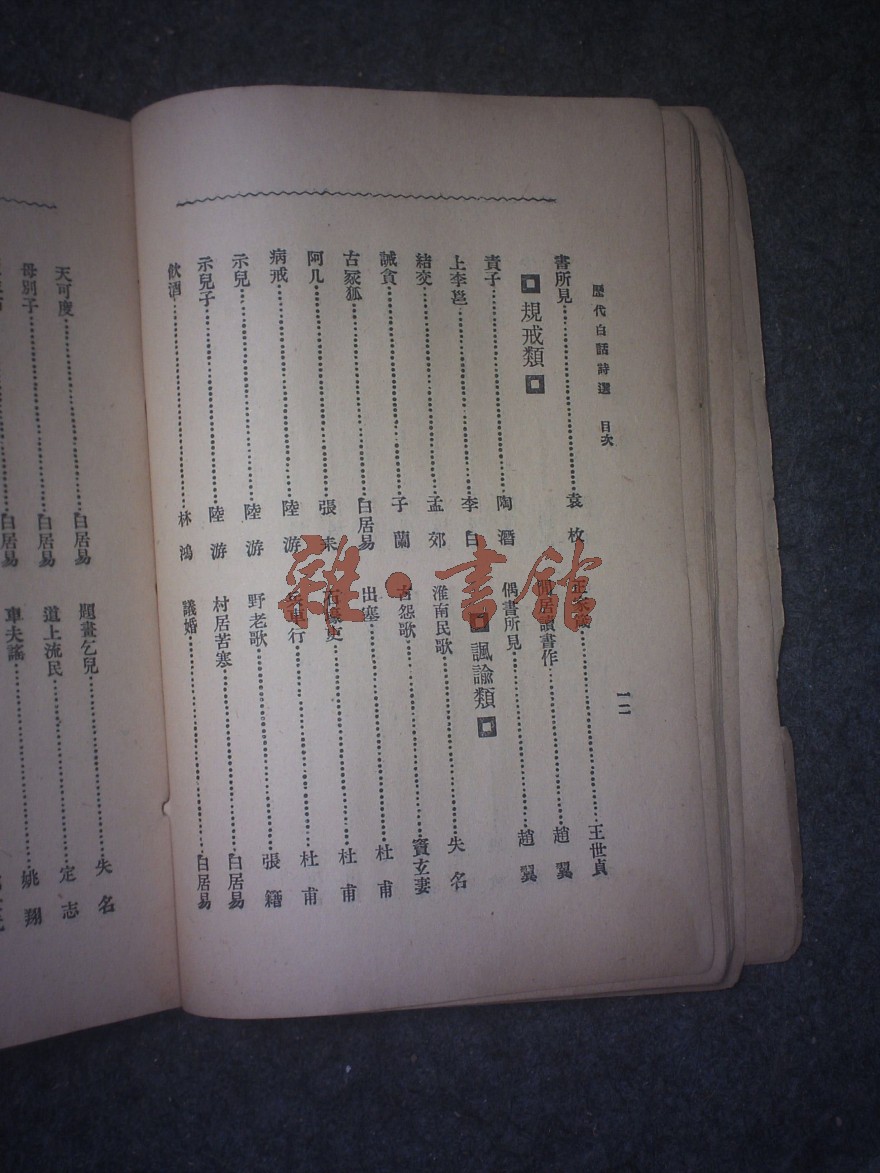 歷代白話詩選 目次
一二
書所見 袁枚
規戒類
責子 陶潛
上李邕 李白
結交 孟郊
誡貪 子蘭
古冢狐 白居易
阿几 張耒
病戒 陸游
示兒 陸游
示兒子 陸游
飲酒 林鴻
王世貞
閒居讀書作 趙翼
偶書所見 趙翼
諷諭類
淮南民歌 失名
古怨歌 竇玄妻
出塞 杜甫
石壕吏 杜甫
兵車行 杜甫
野老歌 張籍
村居苦寒 白居易
議婚 白居易
天可度 白居易
母別子 白居易
白居易
題畫乞兒 失名
道上流民 定志
車夫謠 姚翔
雜·書館